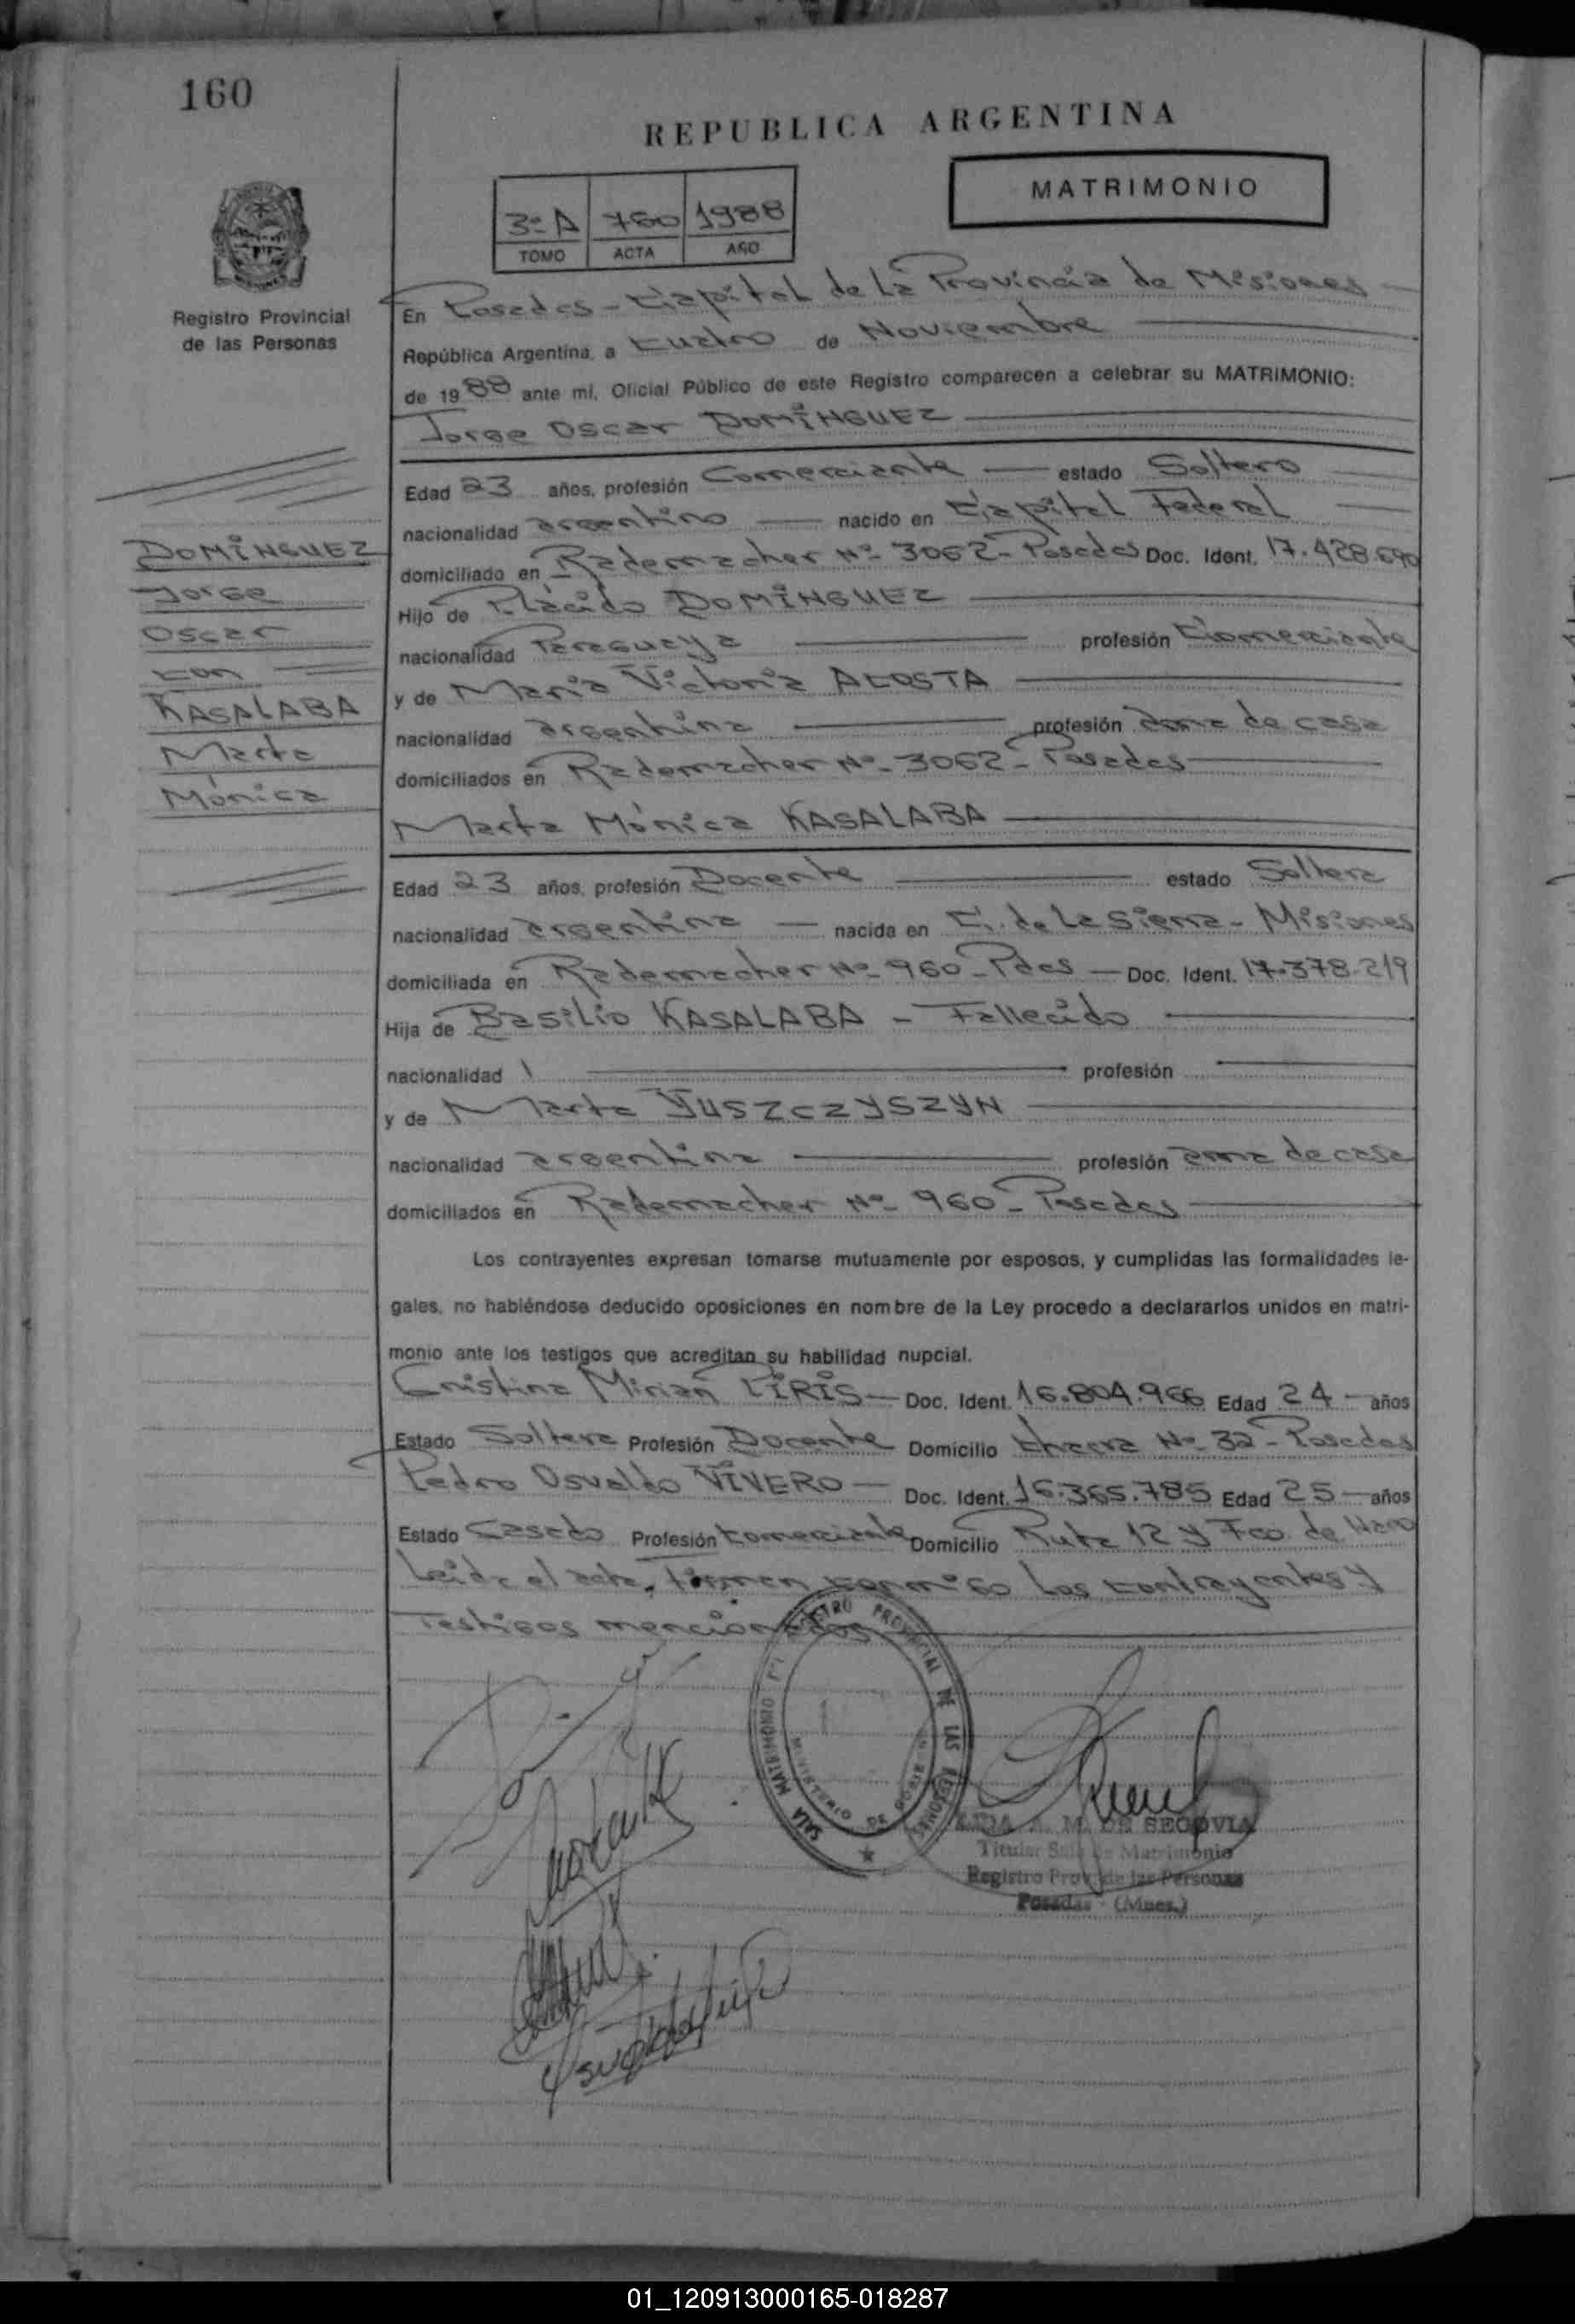 160
REPUBLICA ARGENTINA
MATRIMONIO
3º A 760 1988
TOMO ACTA AÑO
Registro Provincial
de las Personas
En Posadas - Capital de La Provincia de Misiones
República Argentina, a cuatro de Noviembre
de 1988 ante mi, Oficial Público de este Registro comparecen a celebrar su MATRIMONIO:
Jorge Oscar DOMÍNGUEZ
Edad 23 años, profesión Comerciante estado Soltero
nacionalidad argentino nacido en Capital Federal
domiciliado en Rademacher Nº 3062 - Posadas Doc. Ident. 17.428.690
Hijo de Plácido DOMÍNGUEZ
nacionalidad Paraguaya profesión Comerciante
y de María Victoria ACOSTA
nacionalidad argentina profesión ama de casa
domiciliados en Rademacher Nº 3062 - Posadas
DOMÍNGUEZ
Jorge
Oscar
con
KASALABA
Marta
Mónica
Marta Mónica KASALABA
Edad 23 años, profesión Docente estado Soltera
nacionalidad argentina nacida en C. de La Sierra - Misiones
domiciliada en Rademacher Nº 960 - Pdas Doc. Ident. 17.378.219
Hija de Basilio KASALABA - Fallecido
nacionalidad profesión
y de Marta YUSZCZYSZYN
nacionalidad argentina profesión ama de casa
domiciliados en Rademacher Nº 960 - Posadas
Los contrayentes expresan tomarse mutuamente por esposos, y cumplidas las formalidades le-
gales, no habiéndose deducido oposiciones en nombre de la Ley procedo a declararlos unidos en matri-
monio ante los testigos que acreditan su habilidad nupcial.
Cristina Mirian PIRIS - Doc. Ident. 16.804.966 Edad 24 - años
Estado Soltera Profesión Docente Domicilio Chacra Nº 32 - Posadas
Pedro Osvaldo VIVERO - Doc. Ident. 16.365.785 Edad 25 - años
Estado Casado Profesión Comerciante Domicilio Ruta 12 y Fco. de Haro
Leida el acta, firman conmigo los contrayentes y
Testigos mencionados
SALA MATRIMONIO REGISTRO PROVINCIAL DE LAS PERSONAS
MINISTERIO DE GOBIERNO
A. M. DE SEGOVIA
Titular Sala de Matrimonio
Registro Prov. de las Personas
Posadas - (Mnes.)
01_120913000165-018287